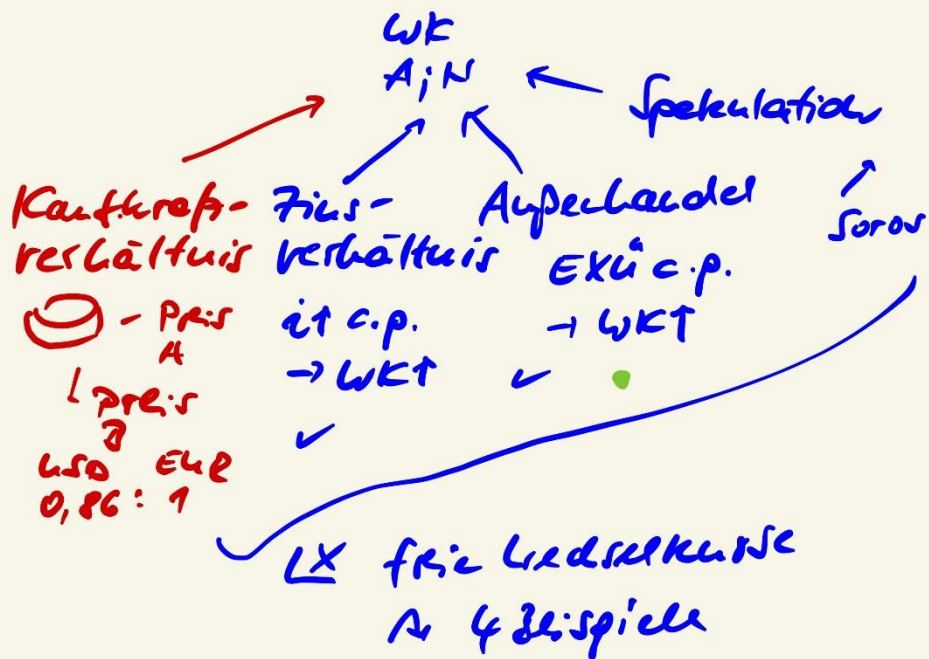 WK
A; N
Spekulation
Soros
Kaufkraft-
verhältnis
- Preis
A
Preis
B
USD EUR
0,86 : 1
Zins-
verhältnis
i↑ c.p.
→ WK↑
✓
Außenhandel
EXÜ c.p.
→ WK↑
✓
LX freie Wechselkurse
4 Beispiele